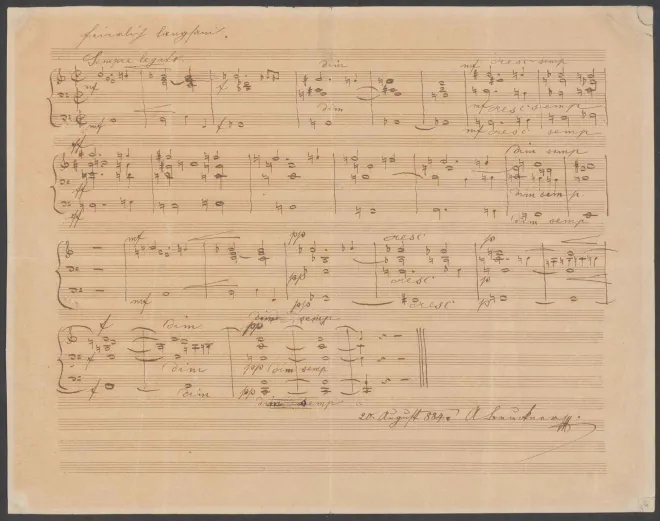 feierlich langsam.
Sempre legato.
dim mf cresc semp
mf f
dim mf cresc semp
mf f mf cresc semp
ff dim semp
ff dim semp
ff dim semp
mf pp cresc p
pp cresc p
mf pp cresc p
dim semp
f dim pp
f dim ppp dim semp
f dim pp
dim semp
20. August 884. ABruckner